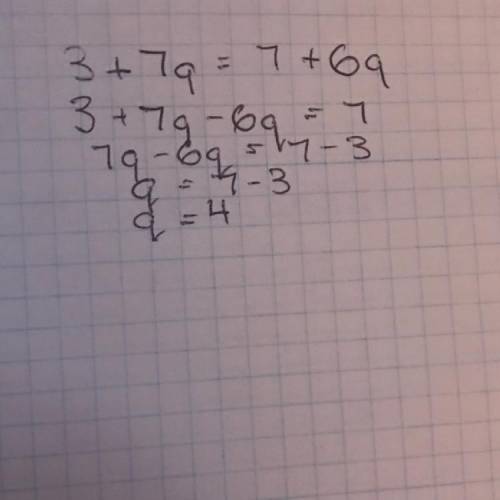 3 + 7q = 7 + 6q
3 + 7q - 6q = 7
7q - 6q = 7 - 3
q = 7 - 3
q = 4